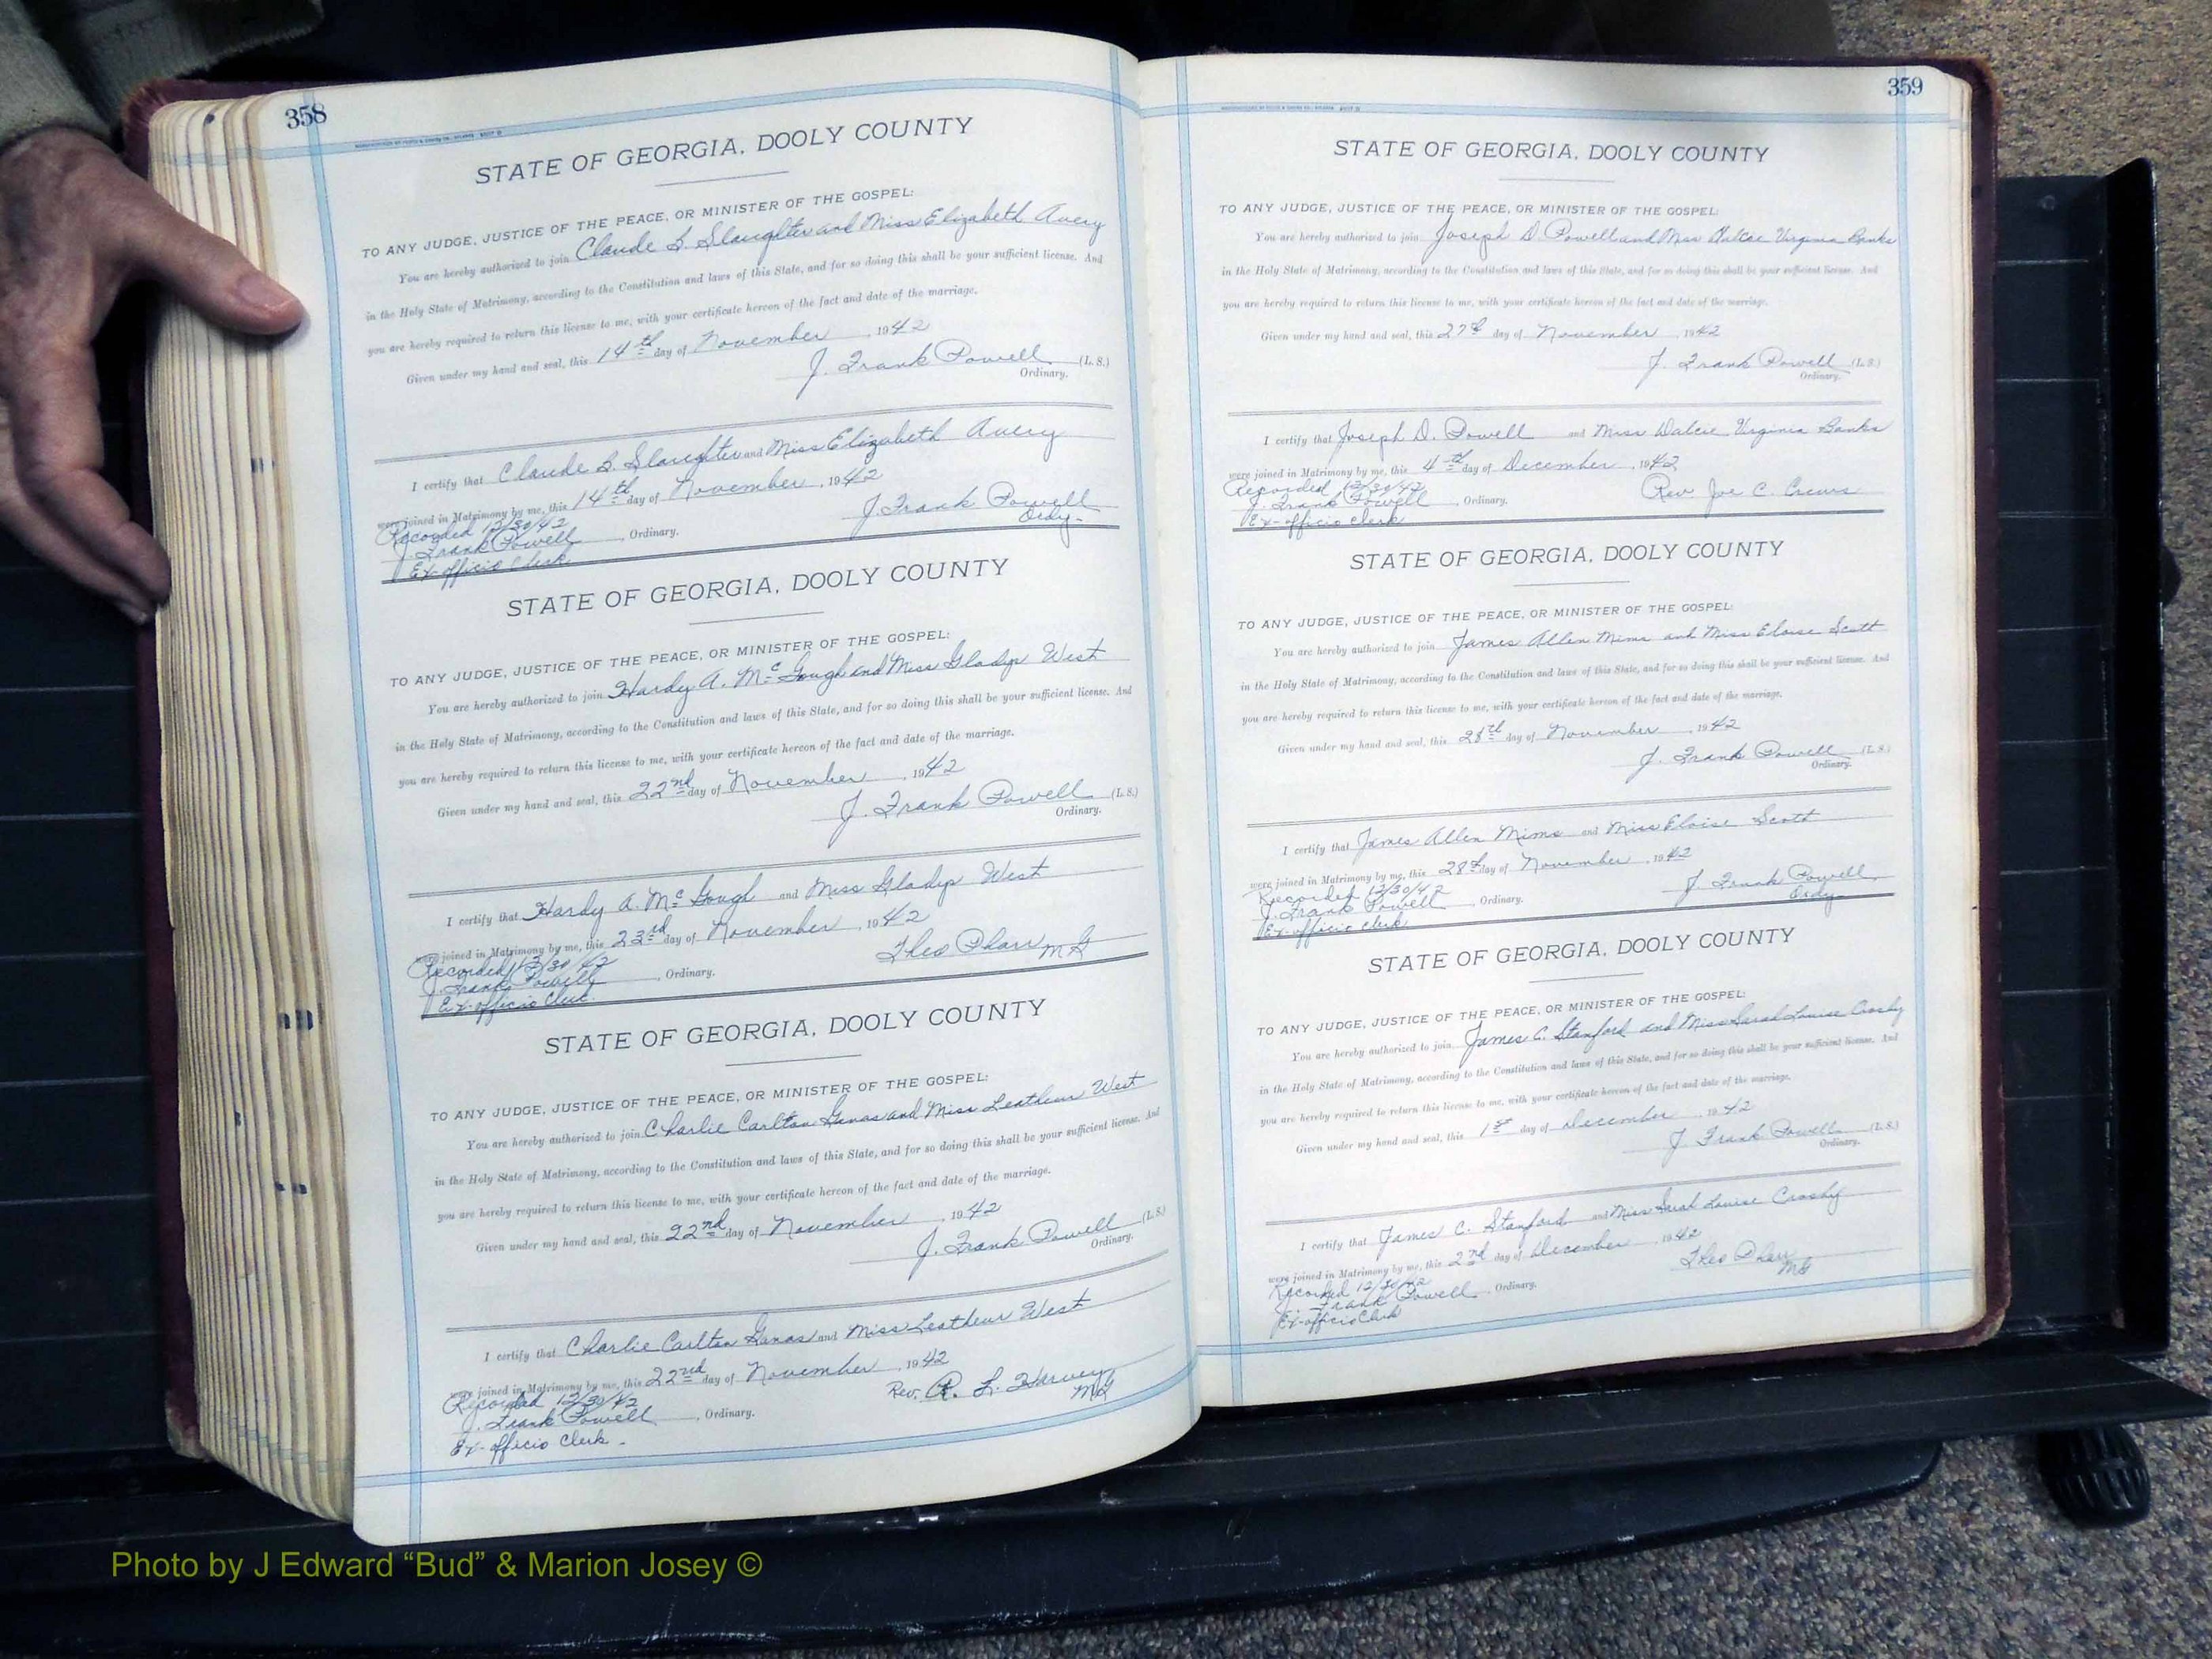 358
STATE OF GEORGIA, DOOLY COUNTY
TO ANY JUDGE, JUSTICE OF THE PEACE, OR MINISTER OF THE GOSPEL:
You are hereby authorized to join Claude B. Slaughter and Miss Elizabeth Avery
in the Holy State of Matrimony, according to the Constitution and laws of this State, and for so doing this shall be your sufficient license. And
you are hereby required to return this license to me, with your certificate hereon of the fact and date of the marriage.
Given under my hand and seal, this 14th day of November, 1942
J. Frank Powell (L. S.)
Ordinary.
I certify that Claude B. Slaughter and Miss Elizabeth Avery
were joined in Matrimony by me, this 14th day of November, 1942
Recorded 12/30/42
J. Frank Powell
J. Frank Powell, Ordinary.
Ordy.
Ex-officio Clerk
STATE OF GEORGIA, DOOLY COUNTY
TO ANY JUDGE, JUSTICE OF THE PEACE, OR MINISTER OF THE GOSPEL:
You are hereby authorized to join Hardy A. McGough and Miss Gladys West
in the Holy State of Matrimony, according to the Constitution and laws of this State, and for so doing this shall be your sufficient license. And
you are hereby required to return this license to me, with your certificate hereon of the fact and date of the marriage.
Given under my hand and seal, this 22nd day of November, 1942
J. Frank Powell (L. S.)
Ordinary.
I certify that Hardy A. McGough and Miss Gladys West
were joined in Matrimony by me, this 23rd day of November, 1942
Recorded 12/30/42
Theo Pharr MG
J. Frank Powell, Ordinary.
Ex-officio Clerk.
STATE OF GEORGIA, DOOLY COUNTY
TO ANY JUDGE, JUSTICE OF THE PEACE, OR MINISTER OF THE GOSPEL:
You are hereby authorized to join Charlie Carlton Ganas and Miss West
in the Holy State of Matrimony, according to the Constitution and laws of this State, and for so doing this shall be your sufficient license. And
you are hereby required to return this license to me, with your certificate hereon of the fact and date of the marriage.
Given under my hand and seal, this 22nd day of November, 1942
J. Frank Powell (L. S.)
Ordinary.
I certify that Charlie Carlton Ganas and Miss West
were joined in Matrimony by me, this 22nd day of November, 1942
Recorded 12/30/42
Rev. R. L. Harvey
MG
J. Frank Powell, Ordinary.
Ex-officio Clerk.
359
STATE OF GEORGIA, DOOLY COUNTY
TO ANY JUDGE, JUSTICE OF THE PEACE, OR MINISTER OF THE GOSPEL:
You are hereby authorized to join Joseph D. Powell and Miss Virginia Banks
in the Holy State of Matrimony, according to the Constitution and laws of this State, and for so doing this shall be your sufficient license. And
you are hereby required to return this license to me, with your certificate hereon of the fact and date of the marriage.
Given under my hand and seal, this 27th day of November, 1942
J. Frank Powell (L. S.)
Ordinary.
I certify that Joseph D. Powell and Miss Virginia Banks
were joined in Matrimony by me, this 4th day of December, 1942
Recorded 12/30/42
Rev. Joe C. Crews
J. Frank Powell, Ordinary.
Ex-officio Clerk
STATE OF GEORGIA, DOOLY COUNTY
TO ANY JUDGE, JUSTICE OF THE PEACE, OR MINISTER OF THE GOSPEL:
You are hereby authorized to join James Allen Mims and Miss Eloise Scott
in the Holy State of Matrimony, according to the Constitution and laws of this State, and for so doing this shall be your sufficient license. And
you are hereby required to return this license to me, with your certificate hereon of the fact and date of the marriage.
Given under my hand and seal, this 28th day of November, 1942
J. Frank Powell (L. S.)
Ordinary.
I certify that James Allen Mims and Miss Eloise Scott
were joined in Matrimony by me, this 28th day of November, 1942
Recorded 12/30/42
J. Frank Powell
J. Frank Powell, Ordinary.
Ordy.
Ex-officio Clerk
STATE OF GEORGIA, DOOLY COUNTY
TO ANY JUDGE, JUSTICE OF THE PEACE, OR MINISTER OF THE GOSPEL:
You are hereby authorized to join James C. Stanford and Miss Sarah Louise Crosby
in the Holy State of Matrimony, according to the Constitution and laws of this State, and for so doing this shall be your sufficient license. And
you are hereby required to return this license to me, with your certificate hereon of the fact and date of the marriage.
Given under my hand and seal, this 1st day of December, 1942
J. Frank Powell (L. S.)
Ordinary.
I certify that James C. Stanford and Miss Sarah Louise Crosby
were joined in Matrimony by me, this 2nd day of December, 1942
Recorded 12/30/42
Theo Pharr
MG
J. Frank Powell, Ordinary.
Ex-officio Clerk
Photo by J Edward “Bud” & Marion Josey ©